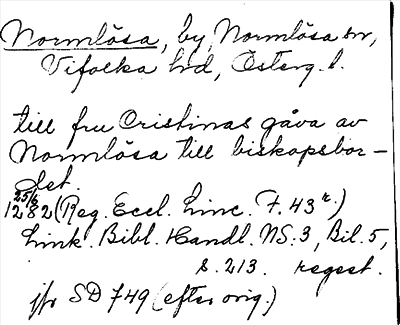 Normlösa, by, Normlösa sn,
Vifolka hd, Österg. l.
till fru Cristinas gåva av
Normlösa till biskopsbor-
det.
25/6
1282 (Reg. Eccl. Linc. F. 43 r.)
Link. Bibl. Handl. NS. 3, Bil. 5,
s. 213. regest.
jfr SD 749 (efter orig.)